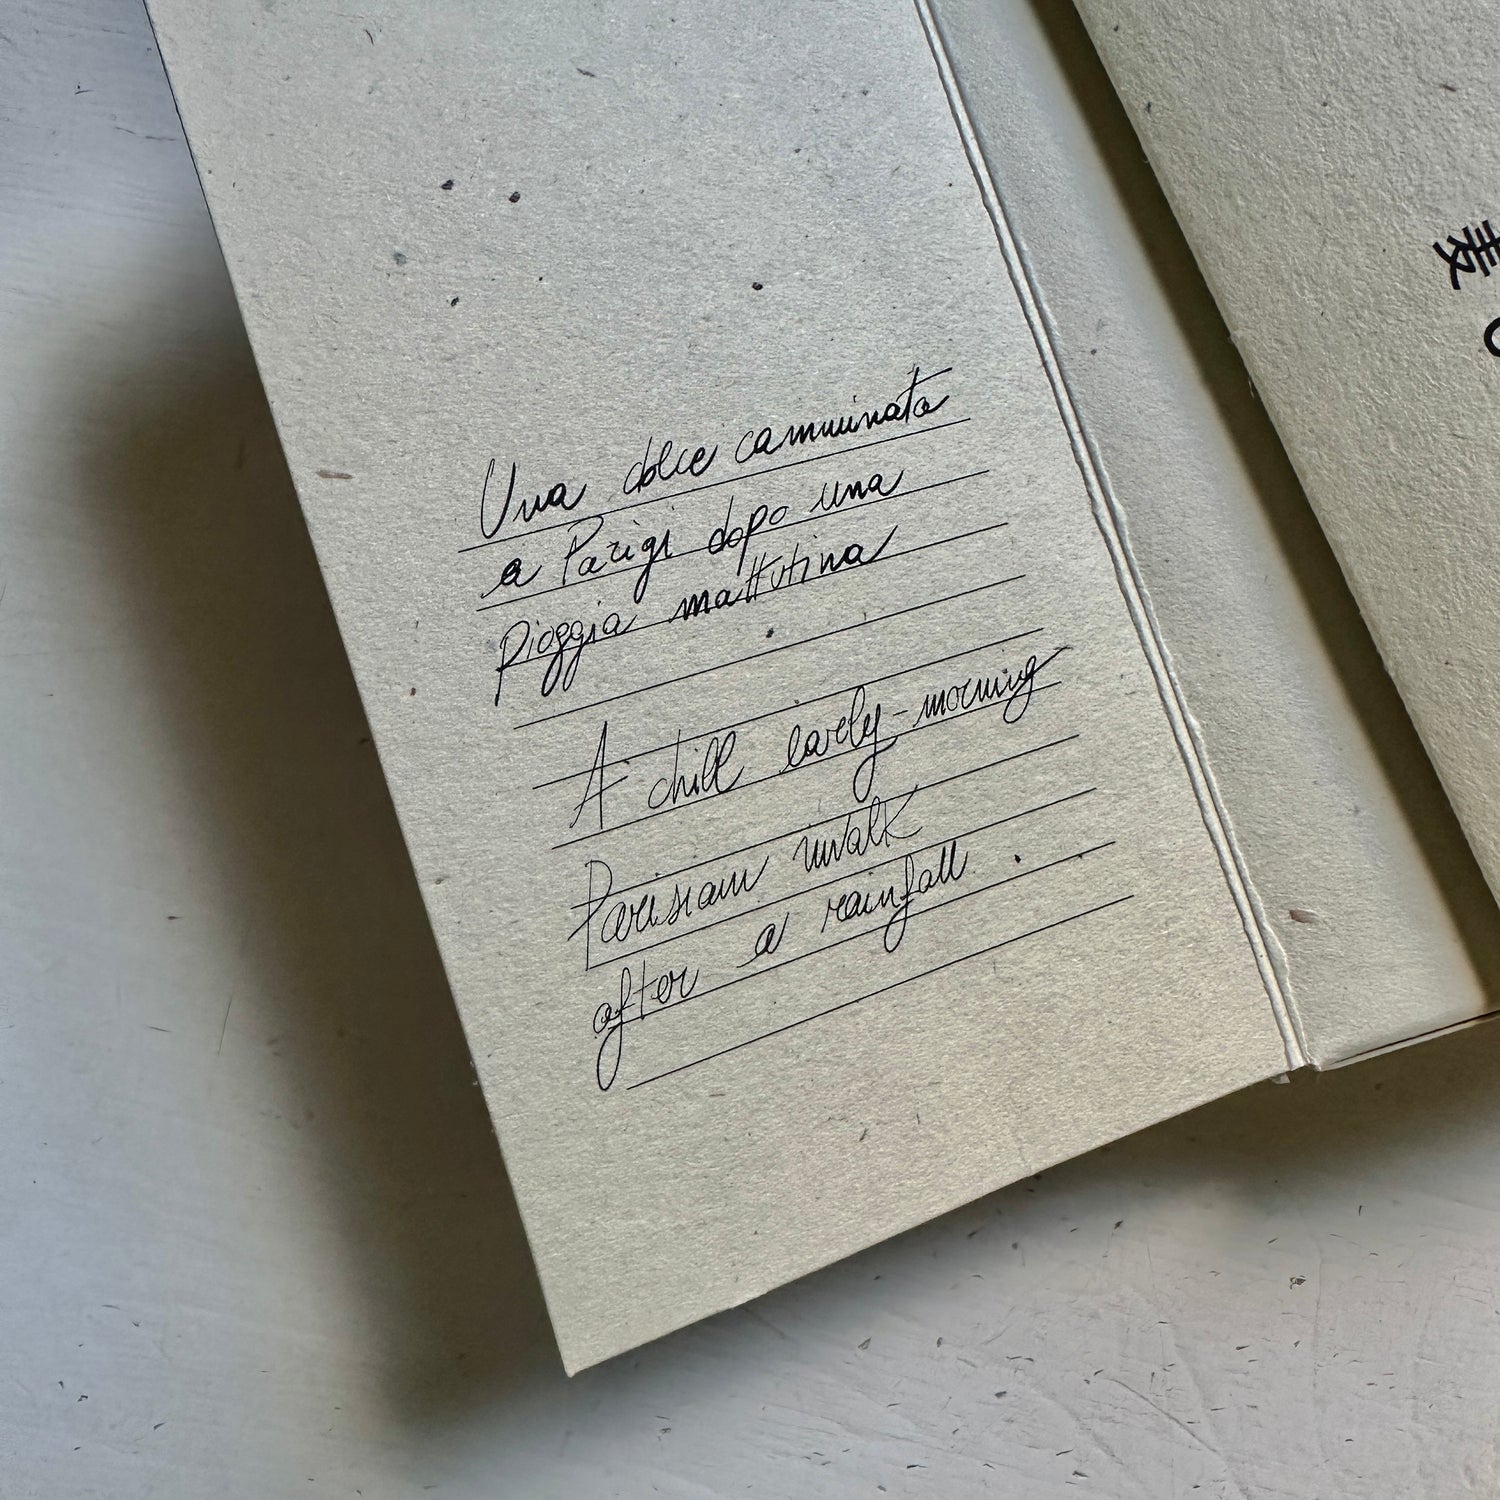 Una dolce camminata
a Parigi dopo una
pioggia mattutina
A chill early-morning
Parisian walk
after a rainfall.